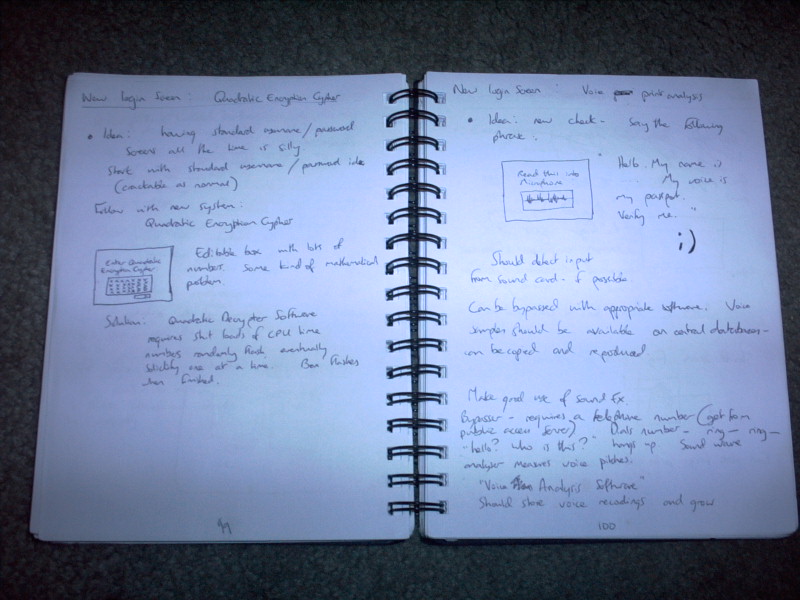 New login screen: Quadratic Encryption Cypher
• Idea: having standard username/password
screens all the time is silly
Start with standard username/password idea
(crackable as normal)
Follow with new system:
Quadratic Encryption Cypher
Enter Quadratic
Encryption Cypher
Editable box with lots of
numbers. Some kind of mathematical
problem.
Solution: Quadratic Decrypter Software
requires shit loads of CPU time
numbers randomly flash eventually
solidify one at a time. Box flashes
when finished.
99
New login screen: Voice print analysis
• Idea: new check - Say the following
phrase:
Read this into
Microphone
"Hello. My name is
... My voice is
my passport.
Verify me."
;)
Should detect input
from sound card - if possible.
Can be bypassed with appropriate software. Voice
samples should be available on central databases -
can be copied and reproduced
Make good use of Sound Fx.
Bypasser - requires a telephone number (get from
public access server) Dials number - ring - ring -
"hello? Who is this?" hangs up Sound wave
analyser measures voice pitches.
"Voice Analysis Software"
Should store voice recordings and grow
100